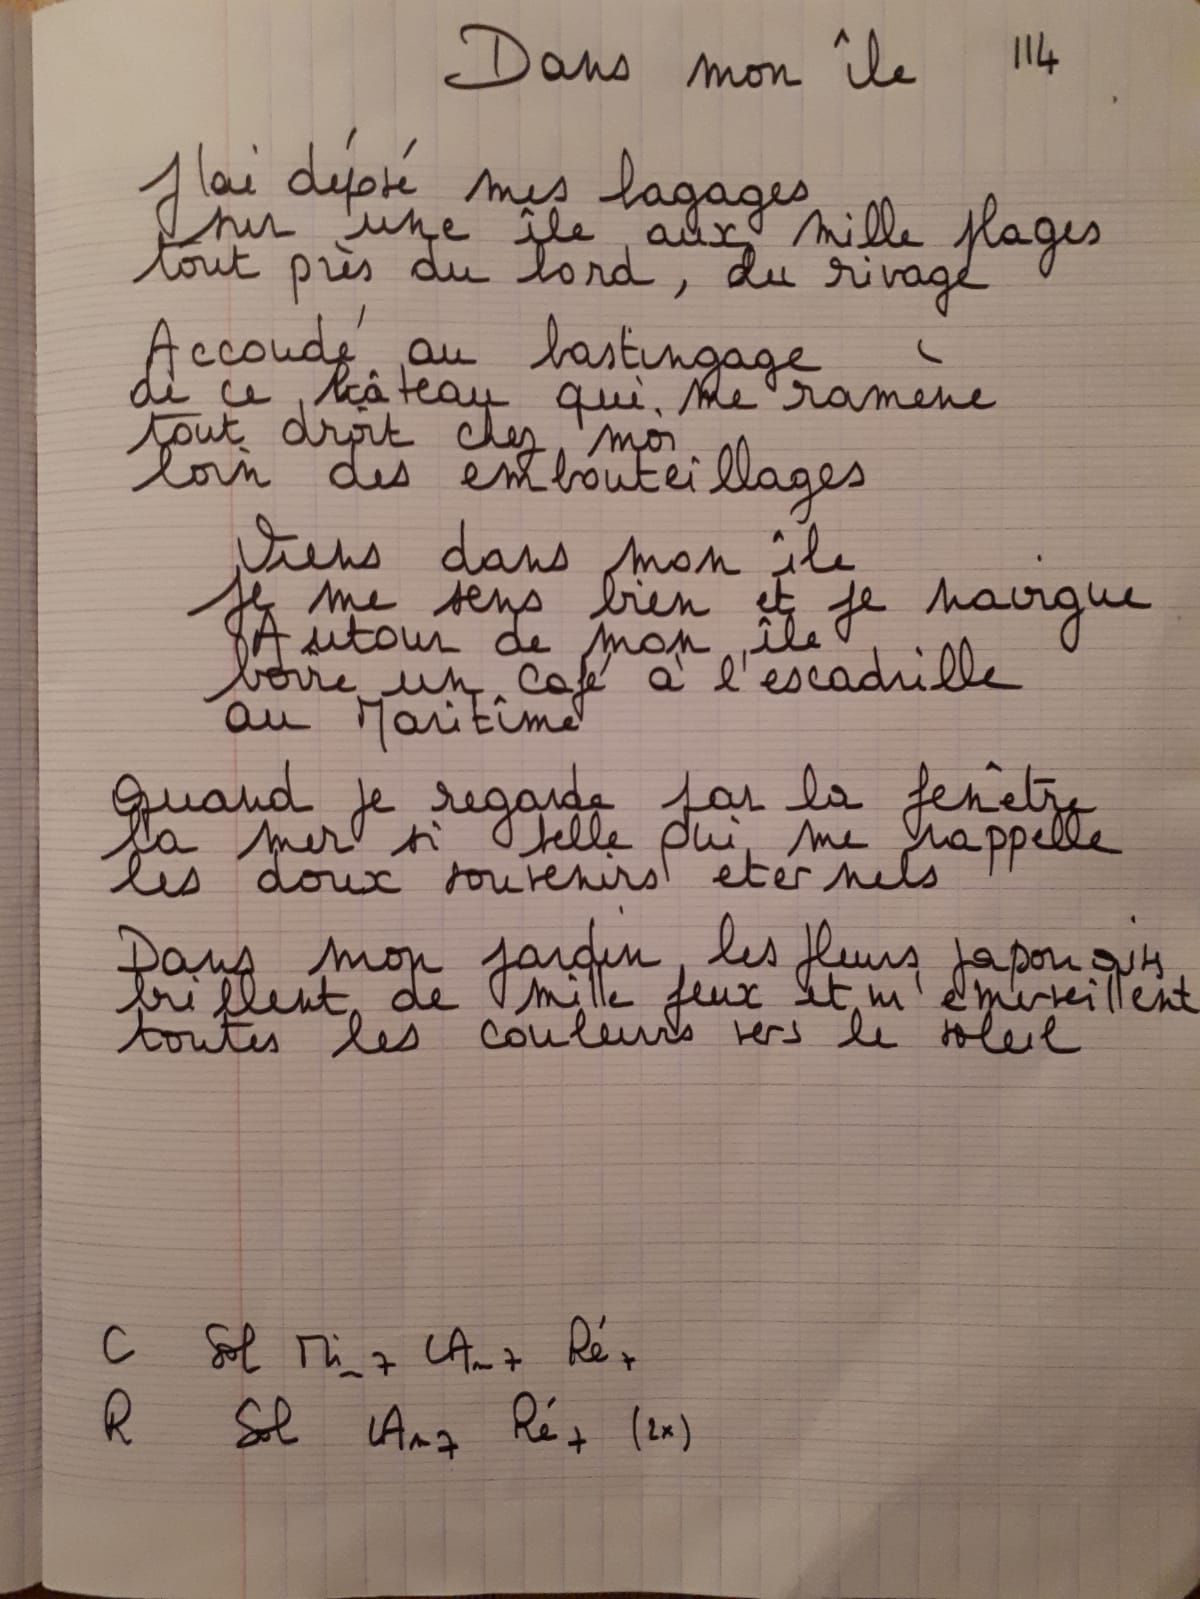 Dans mon île 114
J'ai déposé mes bagages
sur une île aux mille plages
tout près du bord, du rivage
Accoudé au bastingage
de ce bâteau qui me ramène
tout droit chez moi
loin des embouteillages
Viens dans mon île
je me sens bien et je navigue
Autour de mon île
boire un café à l'escadrille
au Maritîme
Quand je regarde par la fenêtre
la mer si belle qui me rappelle
les doux souvenirs eternels
Dans mon jardin les fleurs japonais
brillent de mille feux et m'émerveillent
toutes les couleurs vers le soleil
C Sol Mi-7 LAm7 Ré7
R Sol LAm7 Ré7 (2x)